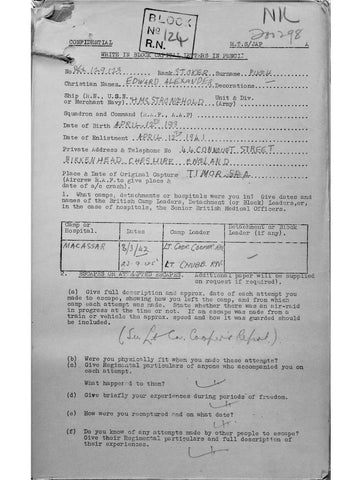 BLOCK
No 124
R.N.
NK
CONFIDENTIAL
R.T.S/JAP
A
WRITE IN BLOCK CAPITAL LETTERS IN PENCIL
No. Rank STOKER Surname.
Christian Names EDWARD ALEXANDER Decorations —
Ship (R.N., U.S.N. or Merchant Navy) H.M.S. STRONGHOLD Unit & Div. (Army)
Squadron and Command (R.A.F., A.A.F)
Date of Birth APRIL 12th
Date of Enlistment APRIL
Private Address & Telephone No 44 STREET
BIRKENHEAD CHESHIRE ENGLAND
Place & Date of Original Capture TIMOR SEA
(Aircrew R.A.F. to give place & date of a/c crash).
1. What camps, detachments or hospitals were you in? Give dates and
names of the British Camp Leaders, Detachment (or Block) Leaders, or,
in the case of hospitals, the Senior British Medical Officers.
Camp or Hospital. Dates Camp Leader Detachment or Block Leader (if any).
MACASSAR 8/3/42 LT. COOPER R.N.
LT. CHUBB. R.N.
2. ESCAPES OR ATTEMPTED ESCAPES. Additional paper will be supplied
on request if required).
(a) Give full description and approx. date of each attempt you
made to escape, showing how you left the camp, and from which
camp each attempt was made. State whether there was an air-raid
in progress at the time or not. If an escape was made from a
train or vehicle the approx. speed and how it was guarded should
be included.
(See Lt Cooper's Report)
(b) Were you physically fit when you made these attempts?
(c) Give Regimental particulars of anyone who accompanied you on
each attempt.
What happened to them?
(d) Give briefly your experiences during periods of freedom.
(e) How were you recaptured and on what date?
(f) Do you know of any attempts made by other people to escape?
Give their Regimental particulars and full description of
their experiences.